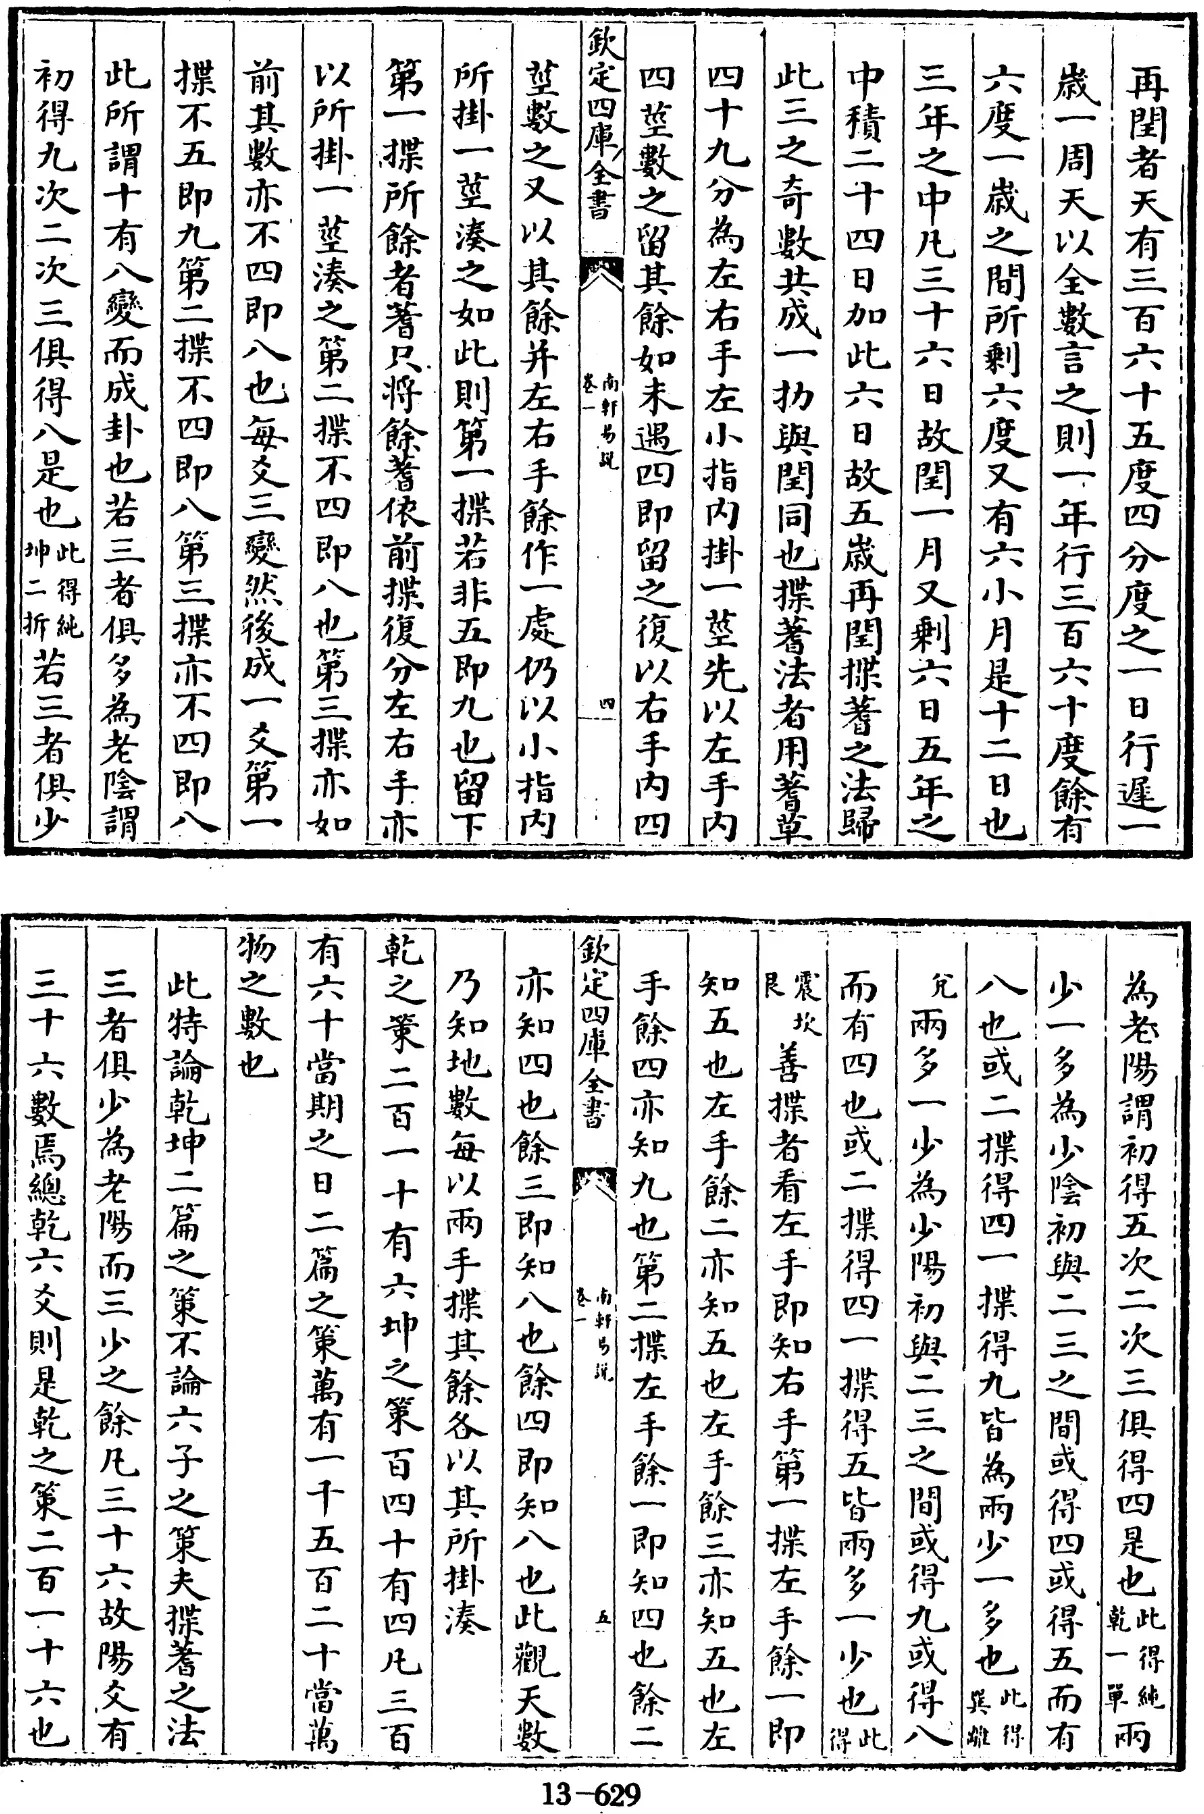 再閏者天有三百六十五度四分度之一日行遲一
歲一周天以全數言之則一年行三百六十度餘有
六度一歲之間所剩六度又有六小月是十二日也
三年之中凡三十六日故閏一月又剩六日五年之
中積二十四日加此六日故五歲再閏揲蓍之法歸
此三之奇數共成一扐與閏同也揲蓍法者用蓍草
四十九分為左右手左小指内掛一莖先以左手内
四莖數之留其餘如未遇四即留之復以右手内四
欽定四庫全書
南軒易説
卷一
四
莖數之又以其餘并左右手餘作一處仍以小指内
所掛一莖湊之如此則第一揲若非五即九也留下
第一揲所餘者蓍只將餘蓍依前揲復分左右手亦
以所掛一莖湊之第二揲不四即八也第三揲亦如
前其數亦不四即八也每爻三變然後成一爻第一
揲不五即九第二揲不四即八第三揲亦不四即八
此所謂十有八變而成卦也若三者俱多為老陰謂
初得九次二次三俱得八是也此得純坤二折若三者俱少
為老陽謂初得五次二次三俱得四是也此得純乾一單兩
少一多為少陰初與二三之間或得四或得五而有
八也或二揲得四一揲得九皆為兩少一多也此得巽離
兌兩多一少為少陽初與二三之間或得九或得八
而有四也或二揲得四一揲得五皆兩多一少也此得
震坎艮善揲者看左手即知右手第一揲左手餘一即
知五也左手餘二亦知五也左手餘三亦知五也左
手餘四亦知九也第二揲左手餘一即知四也餘二
欽定四庫全書
南軒易説
卷一
五
亦知四也餘三即知八也餘四即知八也此觀天數
乃知地數每以兩手揲其餘各以其所掛湊
乾之策二百一十有六坤之策百四十有四凡三百
有六十當期之日二篇之策萬有一千五百二十當萬
物之數也
此特論乾坤二篇之策不論六子之策夫揲蓍之法
三者俱少為老陽而三少之餘凡三十六故陽爻有
三十六數焉總乾六爻則是乾之策二百一十六也
13-629